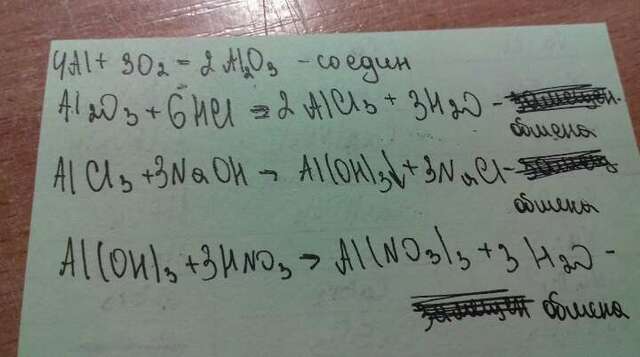 4Al + 3O₂ = 2Al₂O₃ - соедин
Al₂O₃ + 6HCl = 2AlCl₃ + 3H₂O -
обмена
AlCl₃ + 3NaOH → Al(OH)₃↓ + 3NaCl -
обмена
Al(OH)₃ + 3HNO₃ → Al(NO₃)₃ + 3H₂O -
обмена